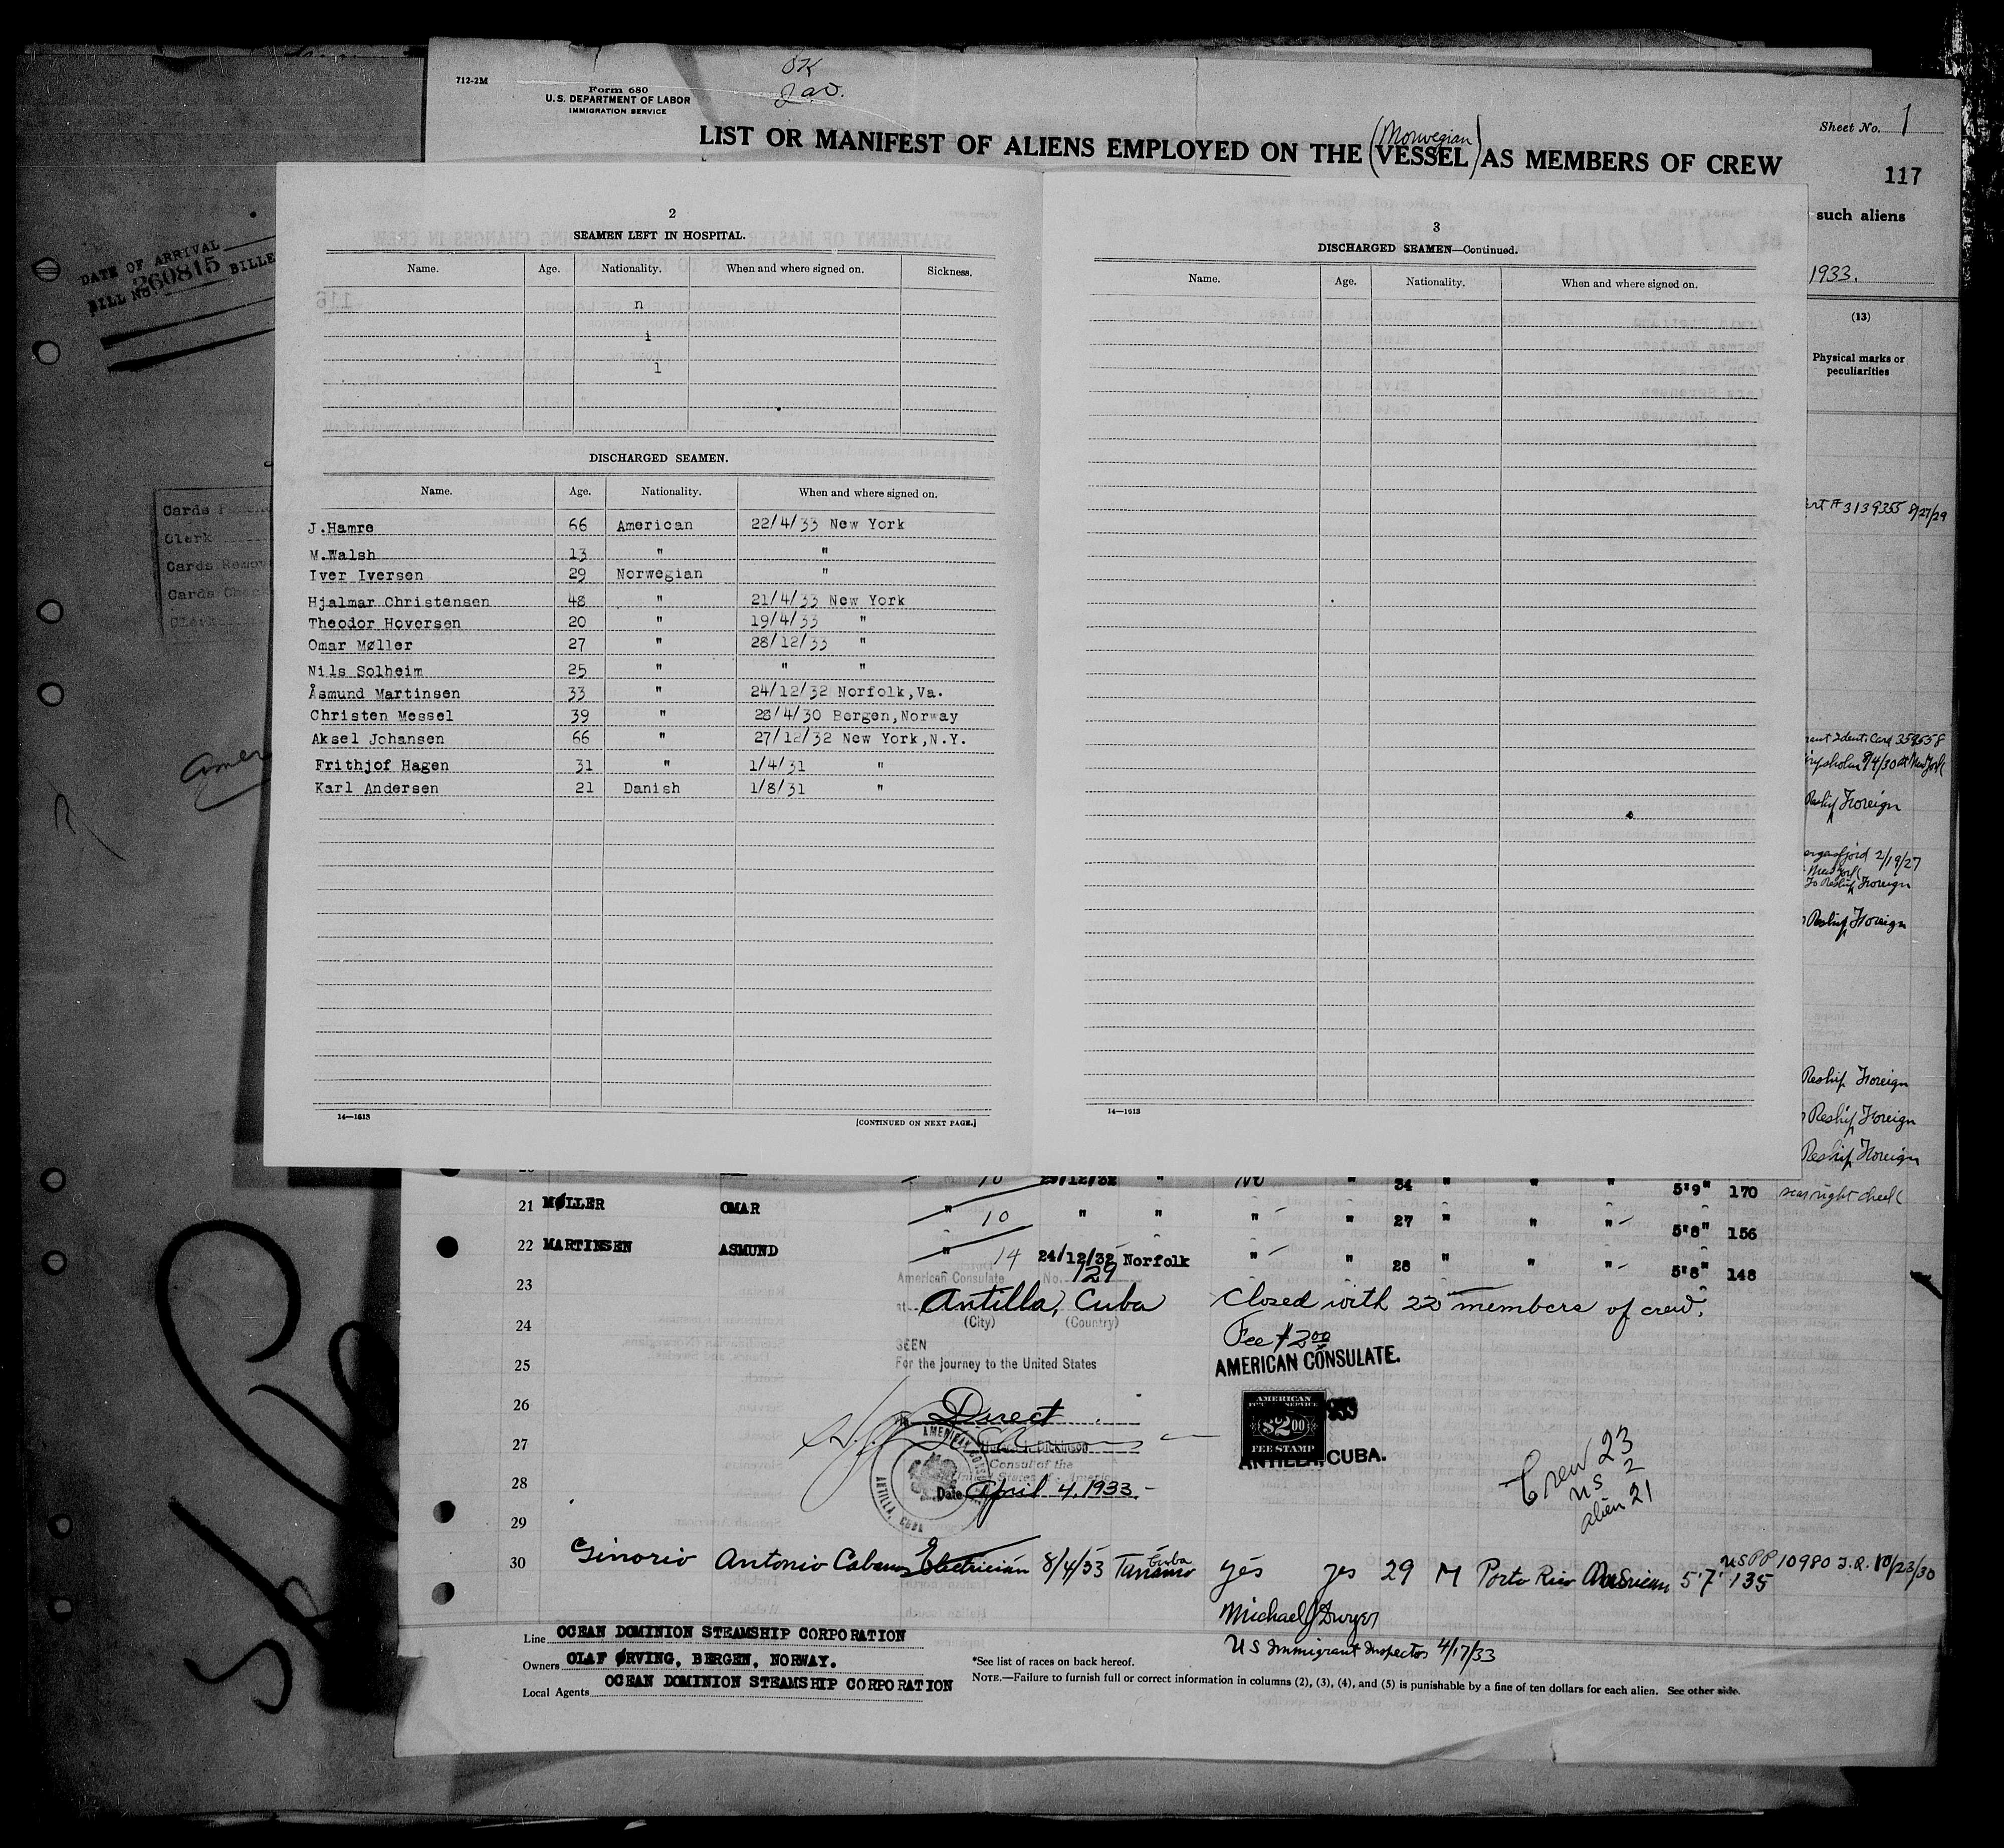 712-2M
Form 680
U.S. DEPARTMENT OF LABOR
IMMIGRATION SERVICE
OK
Sheet No. 1
LIST OR MANIFEST OF ALIENS EMPLOYED ON THE (VESSEL) AS MEMBERS OF CREW
(Norwegian)
117
such aliens
1933.
(13)
Physical marks or
peculiarities
DATE OF ARRIVAL
BILL No. 260815 BILLE
Cards
Clerk
Cards Remov
Cards
Clerk
2
SEAMEN LEFT IN HOSPITAL.
Name. Age. Nationality. When and where signed on. Sickness.
n
i
l
DISCHARGED SEAMEN.
Name. Age. Nationality. When and where signed on.
J.Hamre 66 American 22/4/33 New York
M.Walsh 13 " "
Iver Iversen 29 Norwegian "
Hjalmar Christensen 48 " 21/4/33 New York
Theodor Hoversen 20 " 19/4/33 "
Omar Møller 27 " 28/12/33 "
Nils Solheim 25 " " "
Åsmund Martinsen 33 " 24/12/32 Norfolk,Va.
Christen Messel 39 " 28/4/30 Bergen,Norway
Aksel Johansen 66 " 27/12/32 New York,N.Y.
Frithjof Hagen 31 " 1/4/31 "
Karl Andersen 21 Danish 1/8/31 "
14—1613
[CONTINUED ON NEXT PAGE.]
3
DISCHARGED SEAMEN—Continued.
Name. Age. Nationality. When and where signed on.
14—1613
# 3139355 8/27/29
Identi Card 359658
9/4/30 at New York
Reship Foreign
2/19/27
New York
To Reship Foreign
Reship Foreign
Reship Foreign
Reship Foreign
Reship Foreign
10 29/12/32 " No " 34 " " " 5'9" 170 scar right cheek
21 MØLLER OMAR " 10 " " " " 27 " " " 5'8" 156
22 MARTINSEN ASMUND " 14 24/12/32 Norfolk " " 28 " " " 5'8" 148
23
American Consulate No. 129
at Antilla, Cuba
(City) (Country)
Closed with 22 members of crew.
24
Fee $2.00
SEEN
25
For the journey to the United States
AMERICAN CONSULATE.
26
Direct
AMERICAN
$2.00
FEE STAMP
27
ANTILLA, CUBA.
Consul of the
United States of America
28
Date April 4, 1933.
AMERICAN
ANTILLA, CUBA
Crew 23
US 2
alien 21
29
30 Ginorio Antonio Cabanos Electrician 8/4/33 Tanamo Cuba yes yes 29 M Porto Rico American 5'7" 135 USPP 10980 10/23/30
Michael J Dwyer
US Immigrant Inspector 4/17/33
Line OCEAN DOMINION STEAMSHIP CORPORATION
Owners OLAF ØRVING, BERGEN, NORWAY.
Local Agents OCEAN DOMINION STEAMSHIP CORPORATION
*See list of races on back hereof.
NOTE.—Failure to furnish full or correct information in columns (2), (3), (4), and (5) is punishable by a fine of ten dollars for each alien. See other side.